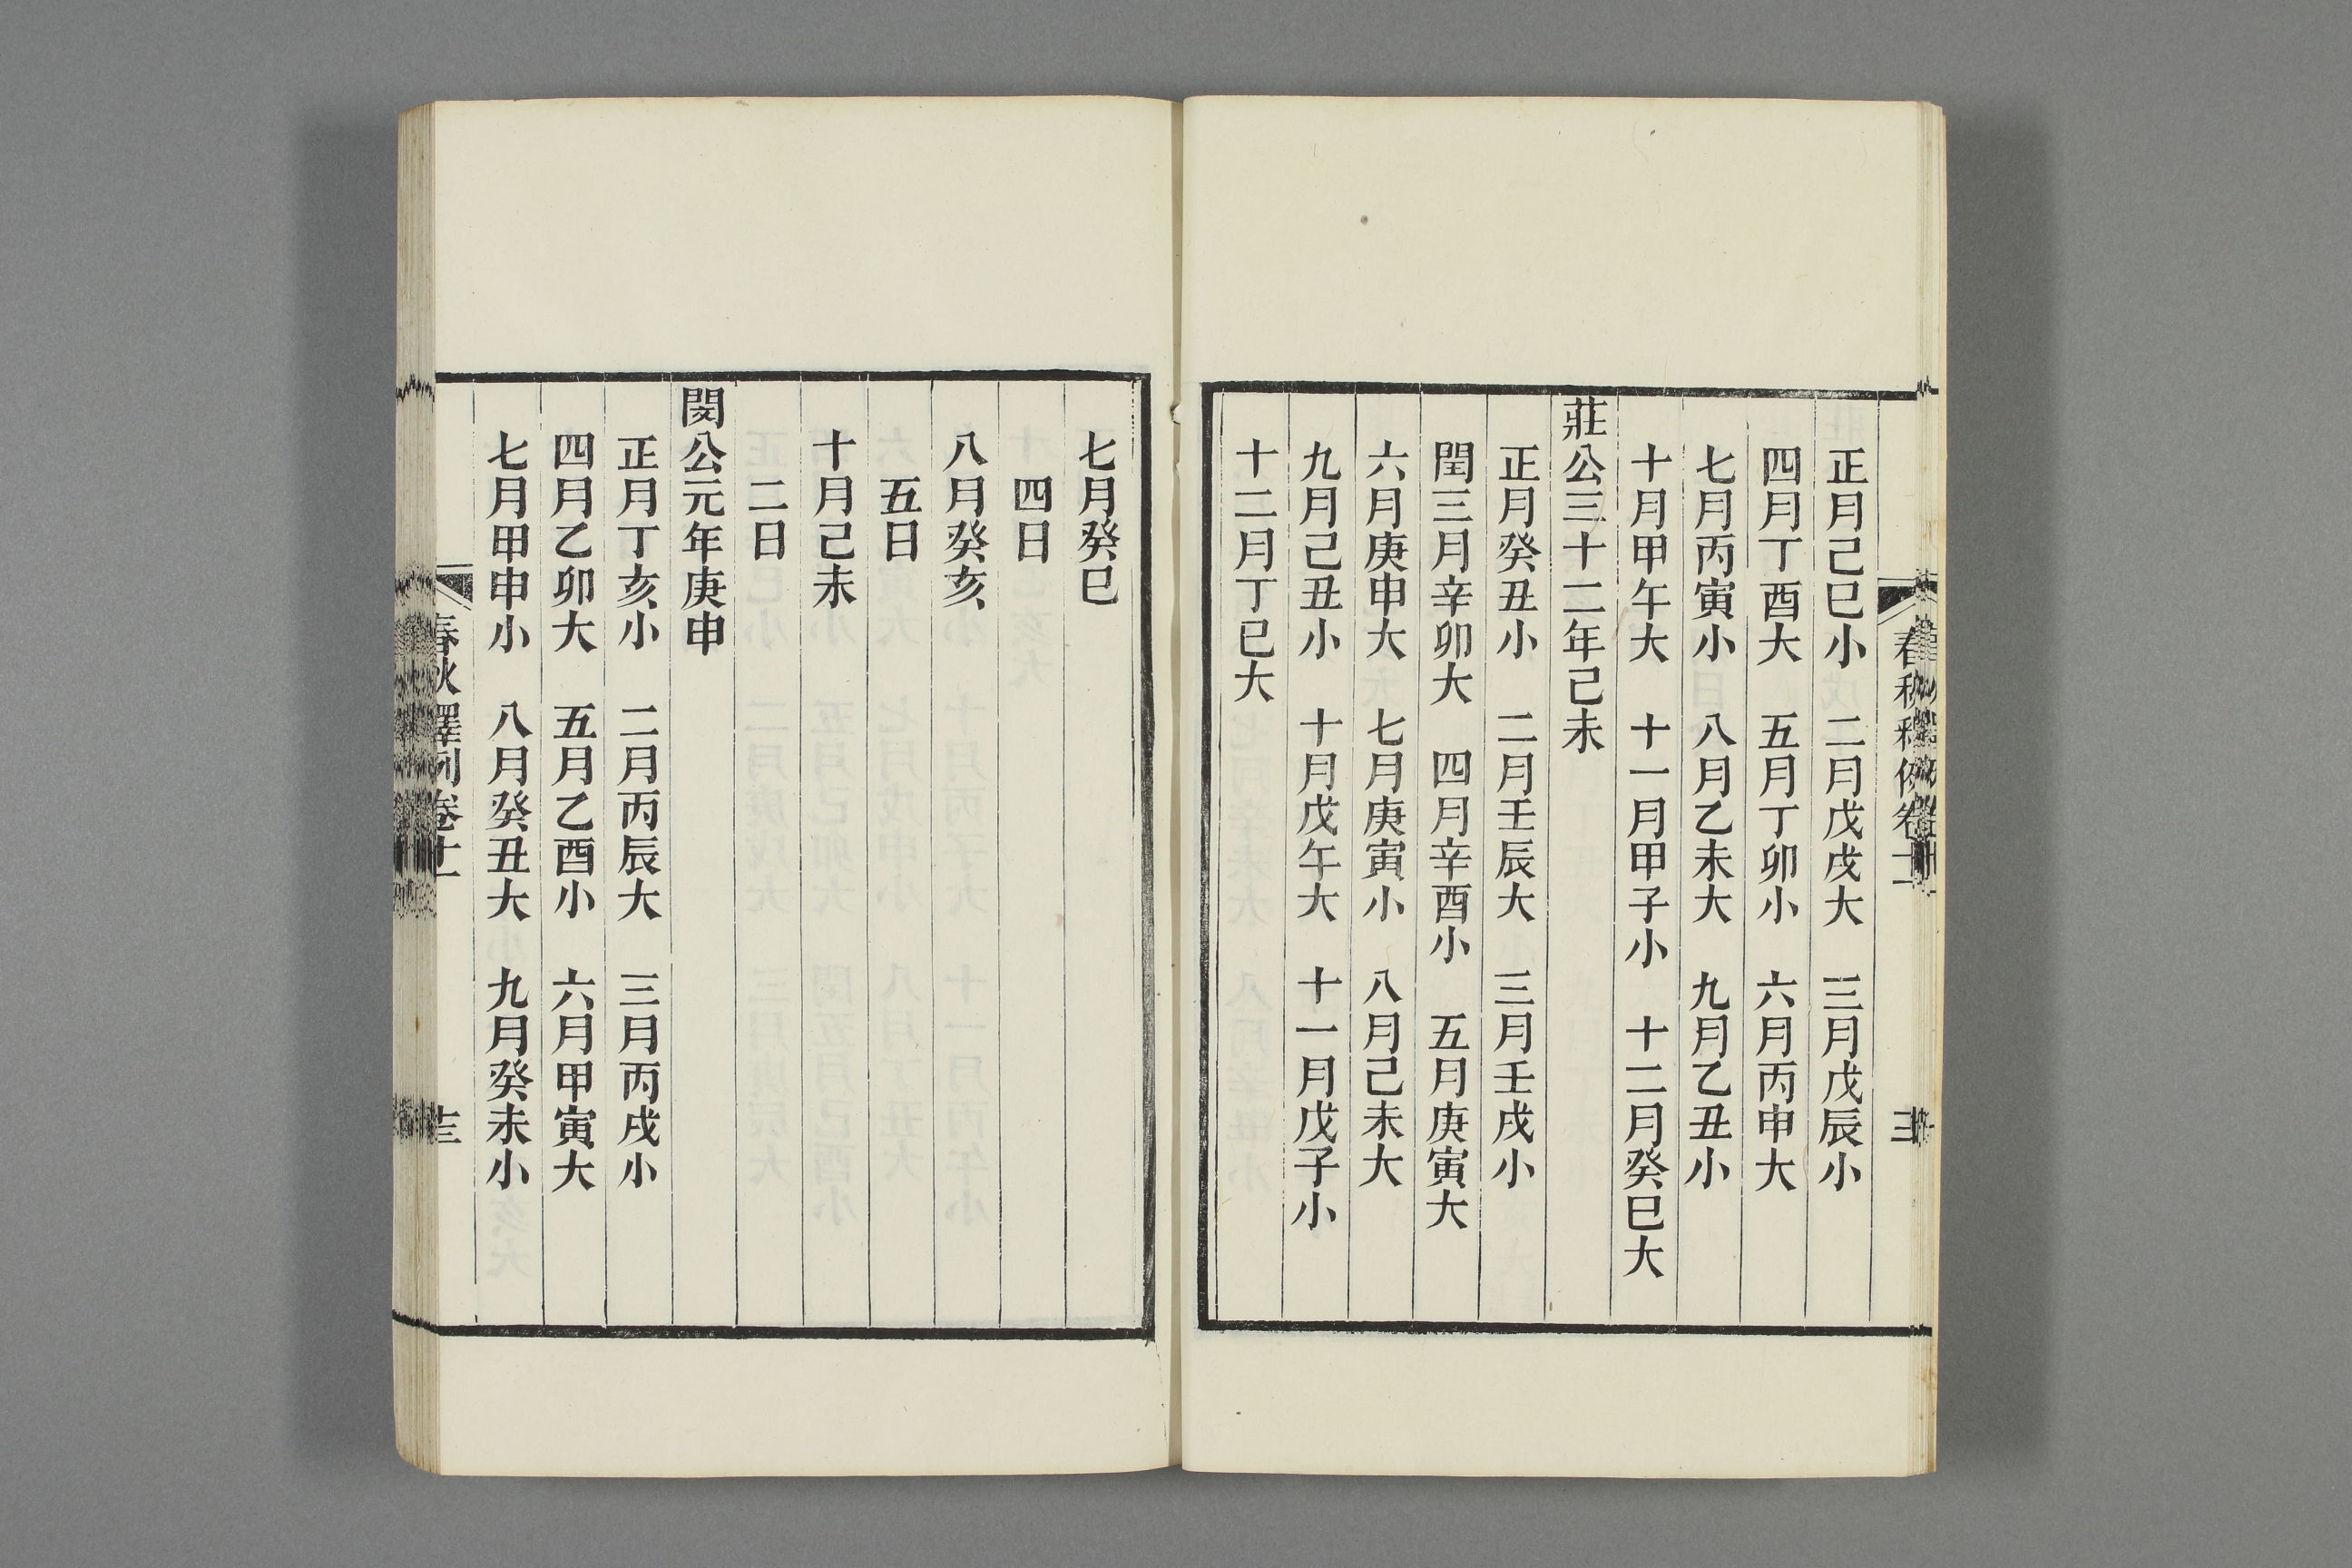 正月己巳小　二月戊戌大　三月戊辰小
四月丁酉大　五月丁卯小　六月丙申大
七月丙寅小　八月乙未大　九月乙丑小
十月甲午大　十一月甲子小　十二月癸巳大
莊公三十二年己未
正月癸丑小　二月壬辰大　三月壬戌小
閏三月辛卯大　四月辛酉小　五月庚寅大
六月庚申大　七月庚寅小　八月己未大
九月己丑小　十月戊午大　十一月戊子小
十二月丁巳大
七月癸巳
四日
八月癸亥
五日
十月己未
二日
閔公元年庚申
正月丁亥小　二月丙辰大　三月丙戌小
四月乙卯大　五月乙酉小　六月甲寅大
七月甲申小　八月癸丑大　九月癸未小
春秋釋例卷十一